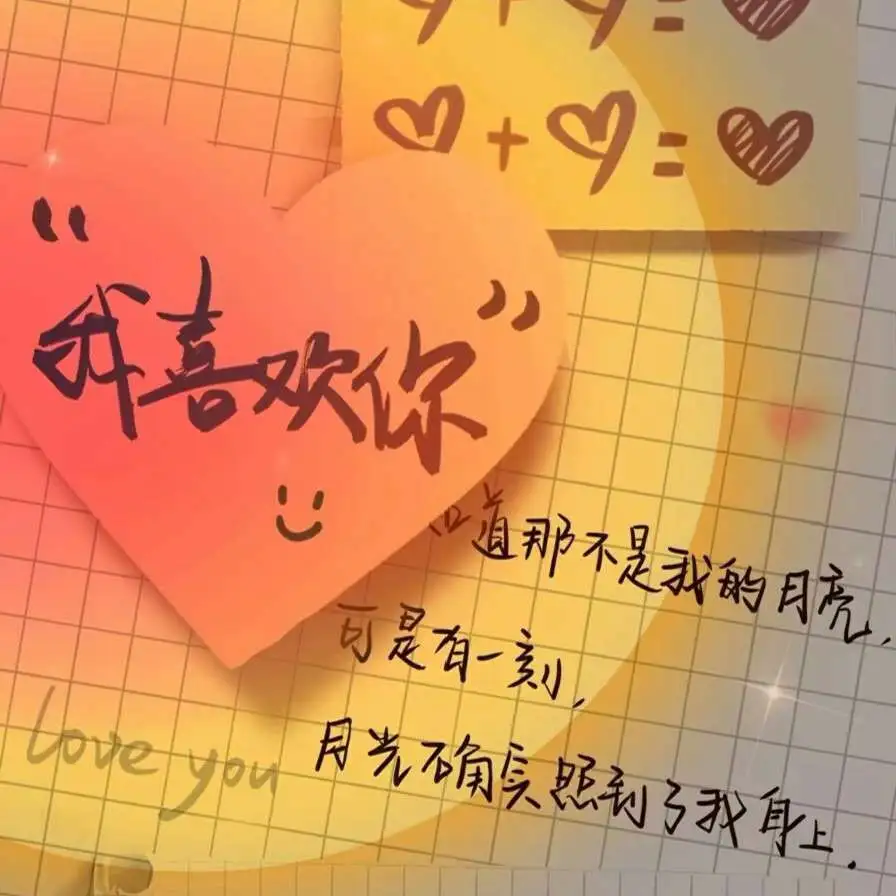 “我喜欢你”
道那不是我的月亮,
可是有一刻,
月光确实照到了我身上.
love you